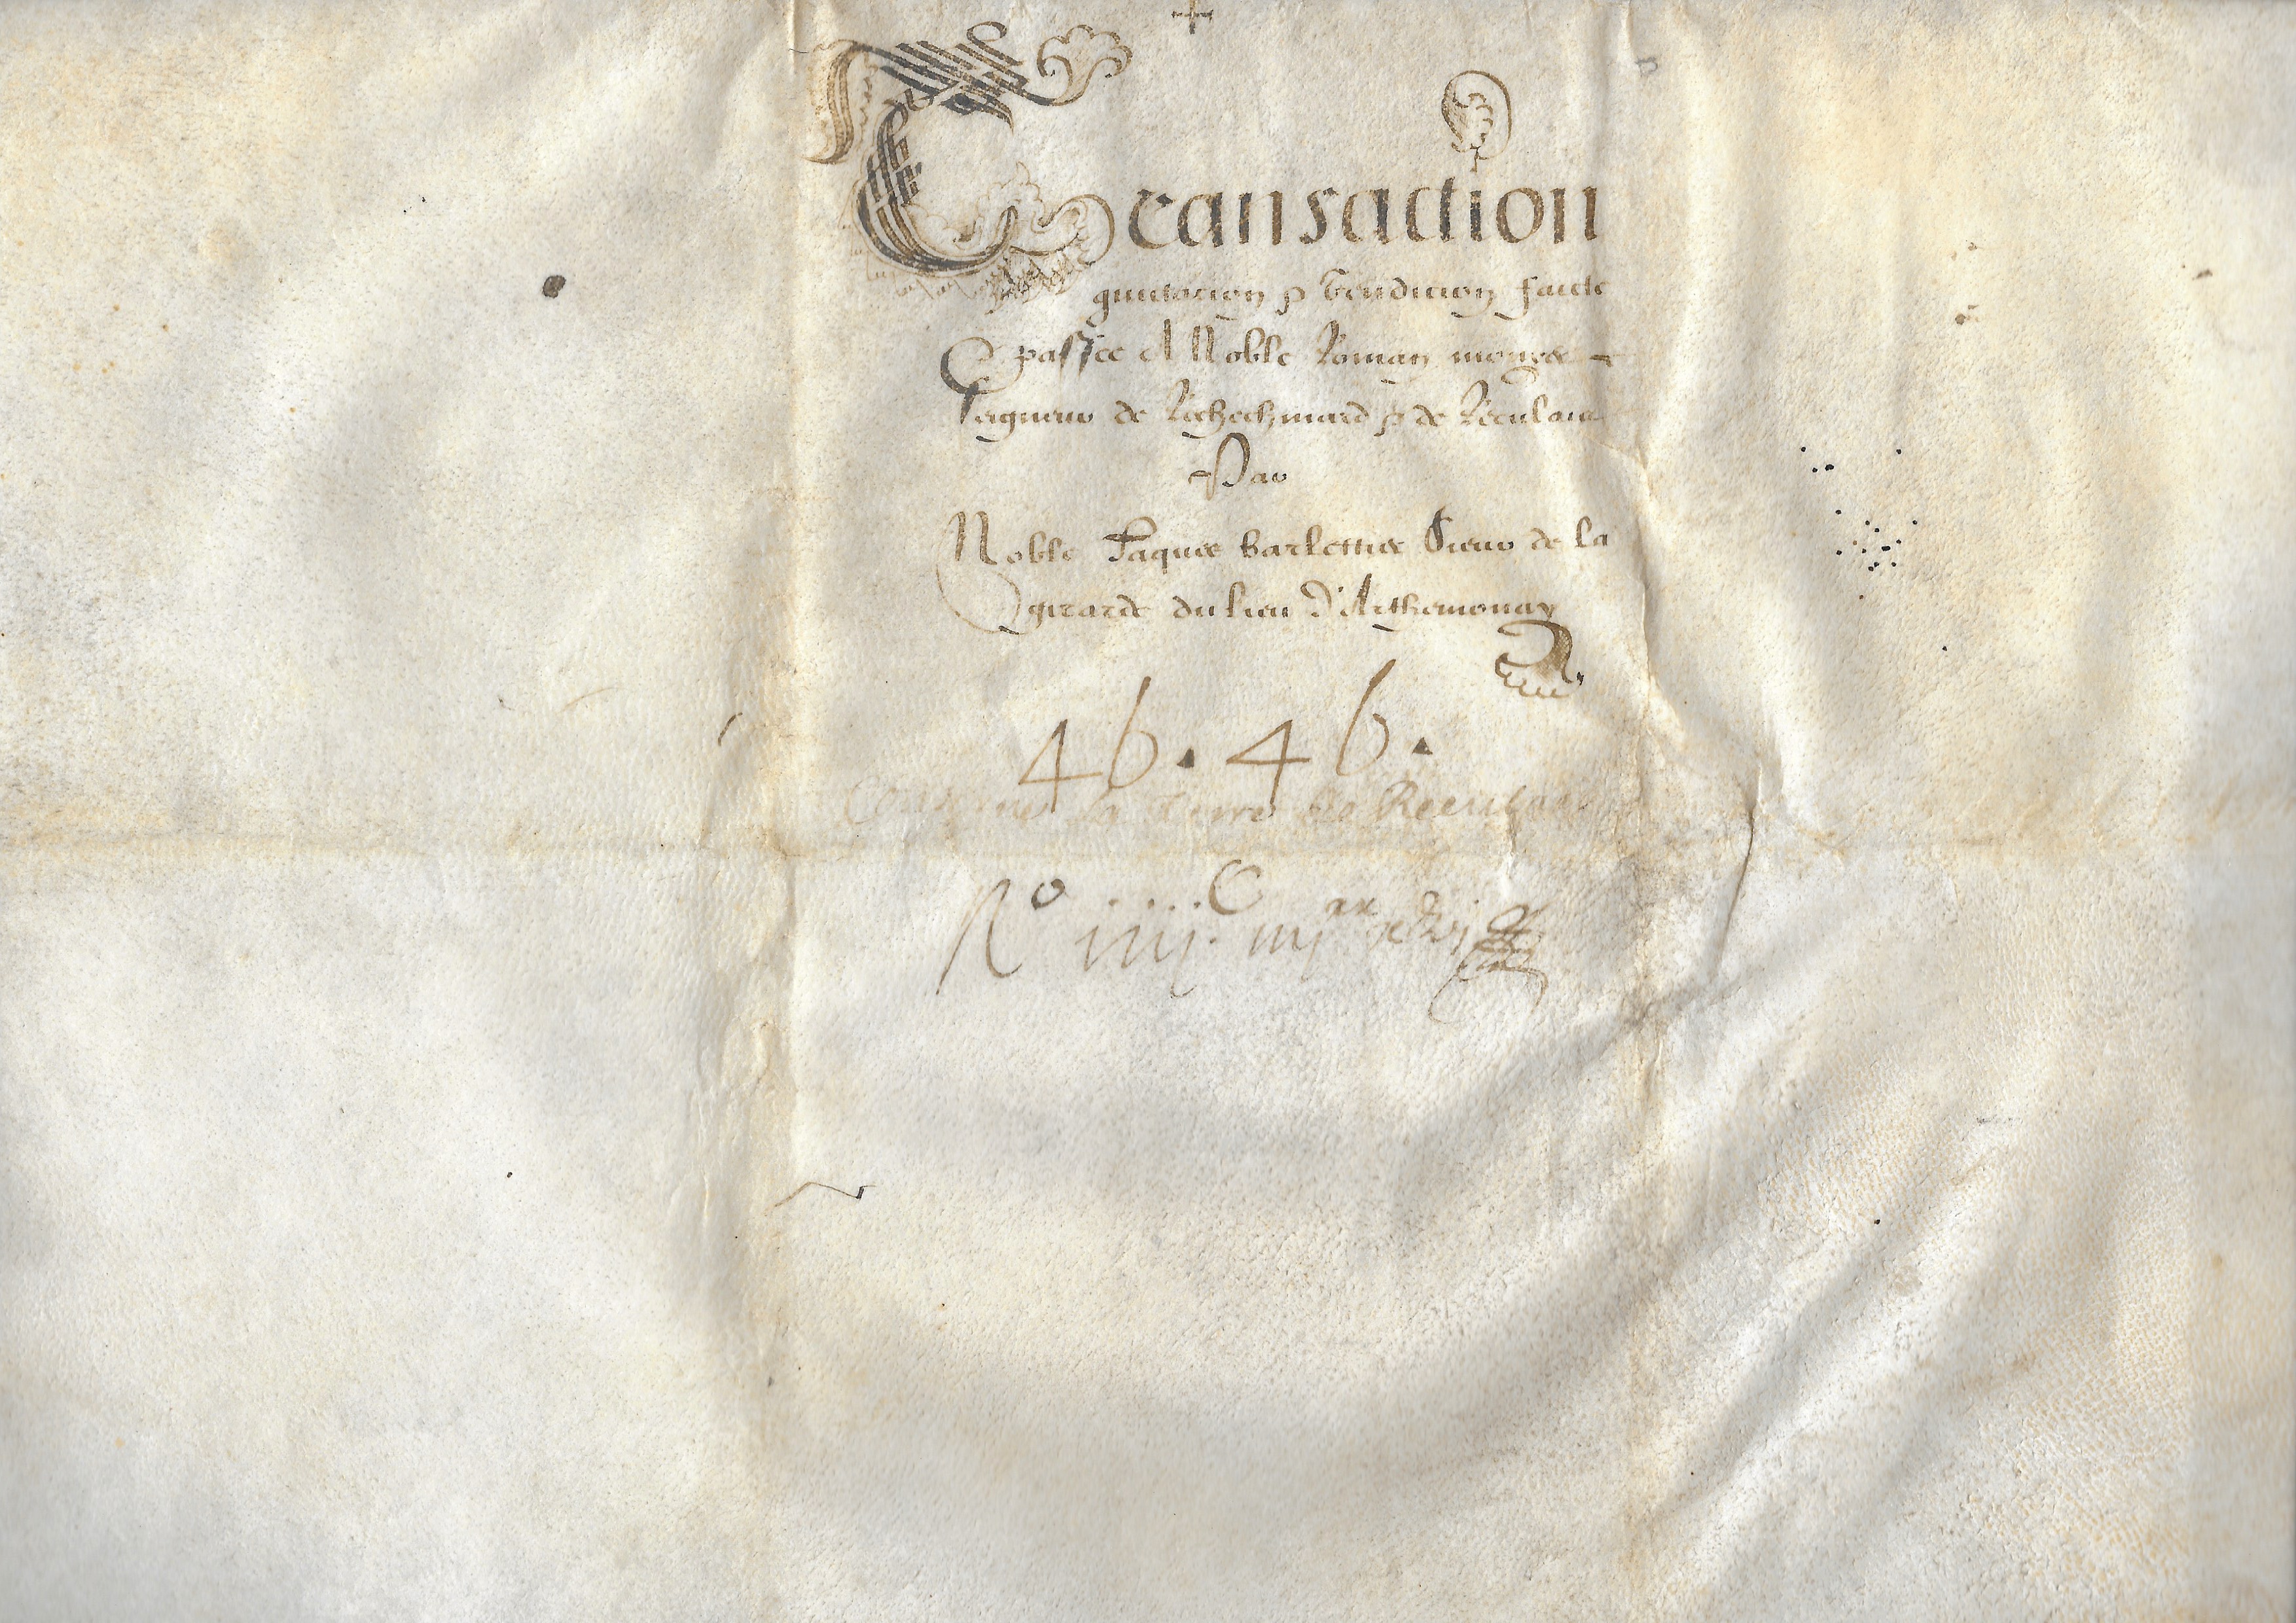 Transaction
quictacion & vendicion faicte
& passee A Noble Roman monyer
seigneur de Rochechinard & de Reculais
Par
Noble Jaques barlettier Sieur de la
girarde du lieu d'Arthemonay
46. 46.
Concerne la Terre de Reculais
No iiij. C iiij xx xvj